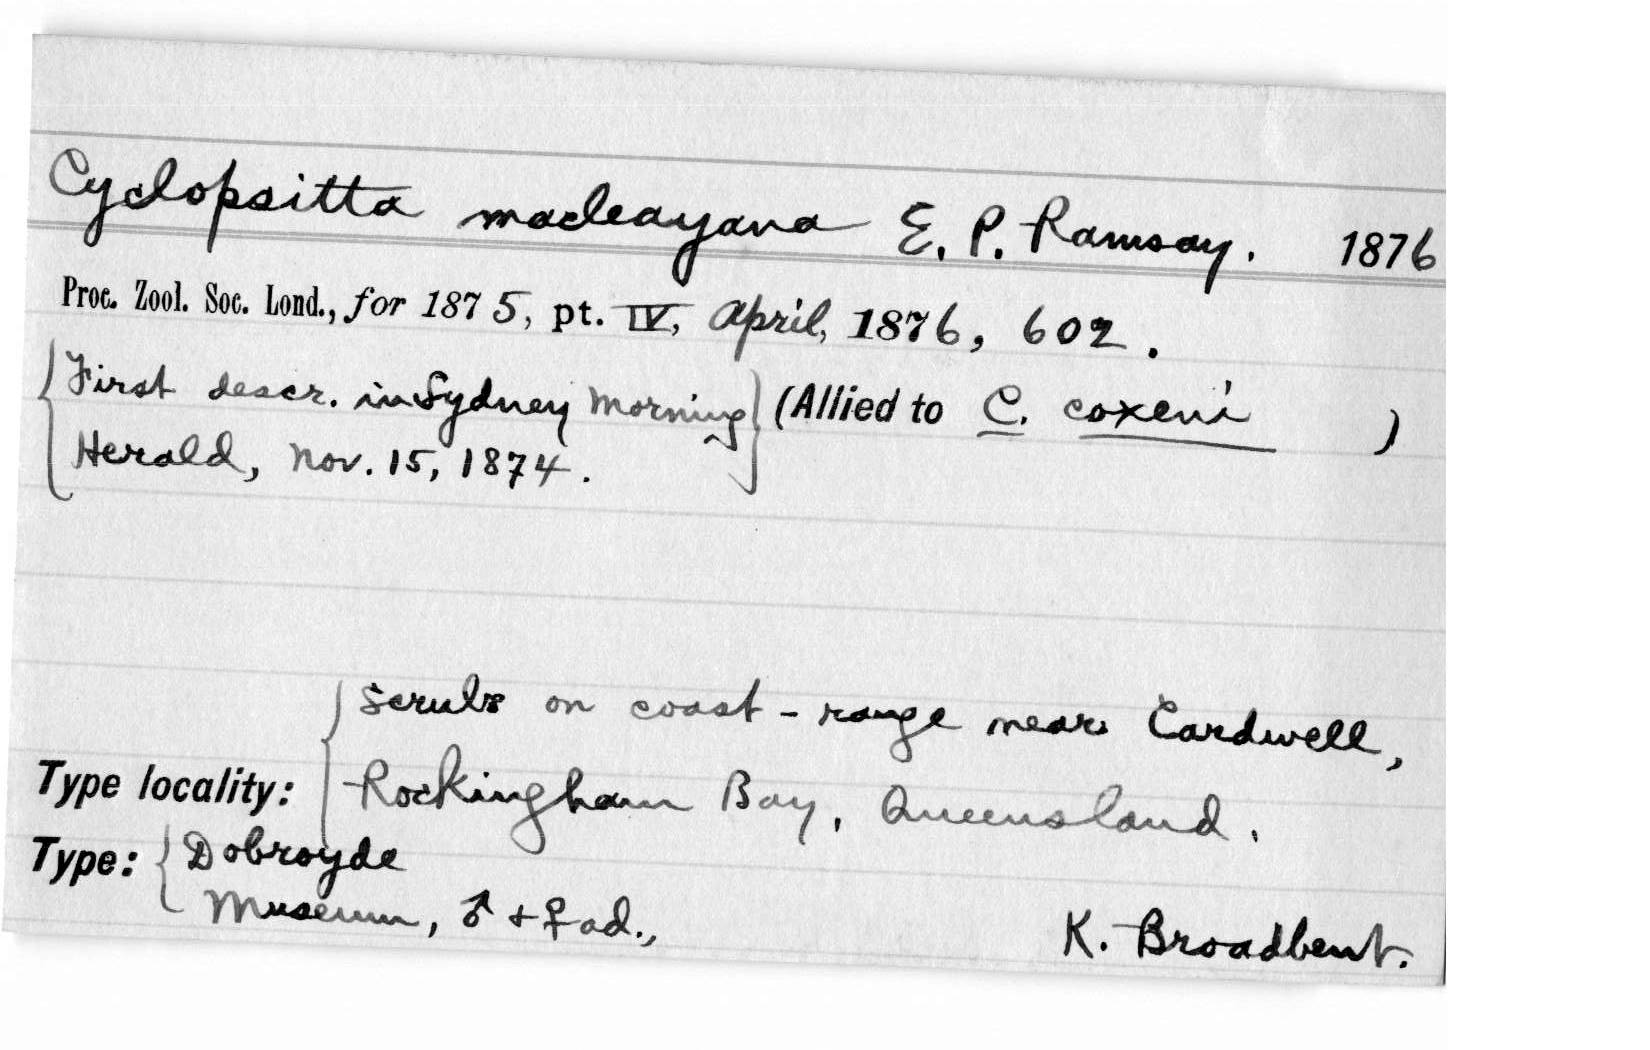 Cyclopsitta macleayana E. P. Ramsay. 1876
Proc. Zool. Soc. Lond., for 1875, pt. IV, April, 1876, 602.
First descr. in Sydney Morning (Allied to C. coxeni )
Herald, Nov. 15, 1874.
Scrubs on coast-range near Cardwell,
Type locality: Rockingham Bay, Queensland.
Type: Dobroyde
Museum, ♂ + ♀ ad., K. Broadbent.